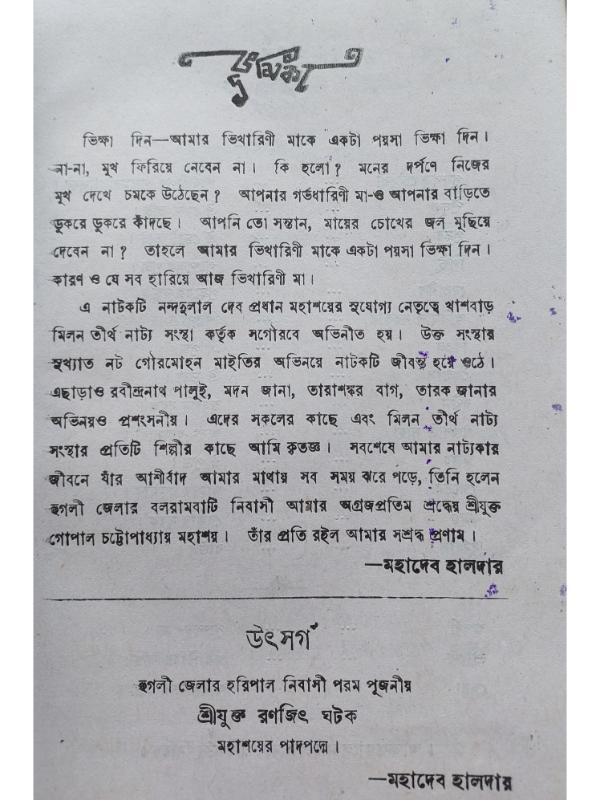 ভূমিকা
ভিক্ষা দিন—আমার ভিখারিণী মাকে একটা পয়সা ভিক্ষা দিন।
না-না, মুখ ফিরিয়ে নেবেন না। কি হলো? মনের দর্পণে নিজের
মুখ দেখে চমকে উঠেছেন? আপনার গর্ভধারিণী মা-ও আপনার বাড়িতে
ডুকরে ডুকরে কাঁদছে। আপনি তো সন্তান, মায়ের চোখের জল মুছিয়ে
দেবেন না? তাহলে আমার ভিখারিণী মাকে একটা পয়সা ভিক্ষা দিন।
কারণ ও যে সব হারিয়ে আজ ভিখারিণী মা।
এ নাটকটি নন্দদুলাল দেব প্রধান মহাশয়ের সুযোগ্য নেতৃত্বে খাশবাড়
মিলন তীর্থ নাট্য সংস্থা কর্তৃক সগৌরবে অভিনীত হয়। উক্ত সংস্থার
সুখ্যাত নট গৌরমোহন মাইতির অভিনয়ে নাটকটি জীবন্ত হয়ে ওঠে।
এছাড়াও রবীন্দ্রনাথ পালুই, মদন জানা, তারাশঙ্কর বাগ, তারক জানার
অভিনয়ও প্রশংসনীয়। এদের সকলের কাছে এবং মিলন তীর্থ নাট্য
সংস্থার প্রতিটি শিল্পীর কাছে আমি কৃতজ্ঞ। সবশেষে আমার নাট্যকার
জীবনে যাঁর আশীর্বাদ আমার মাথায় সব সময় ঝরে পড়ে, তিনি হলেন
হুগলী জেলার বলরামবাটি নিবাসী আমার অগ্রজপ্রতিম শ্রদ্ধেয় শ্রীযুক্ত
গোপাল চট্টোপাধ্যায় মহাশয়। তাঁর প্রতি রইল আমার সশ্রদ্ধ প্রণাম।
—মহাদেব হালদার
উৎসর্গ
হুগলী জেলার হরিপাল নিবাসী পরম পূজনীয়
শ্রীযুক্ত রণজিৎ ঘটক
মহাশয়ের পাদপদ্মে।
—মহাদেব হালদার